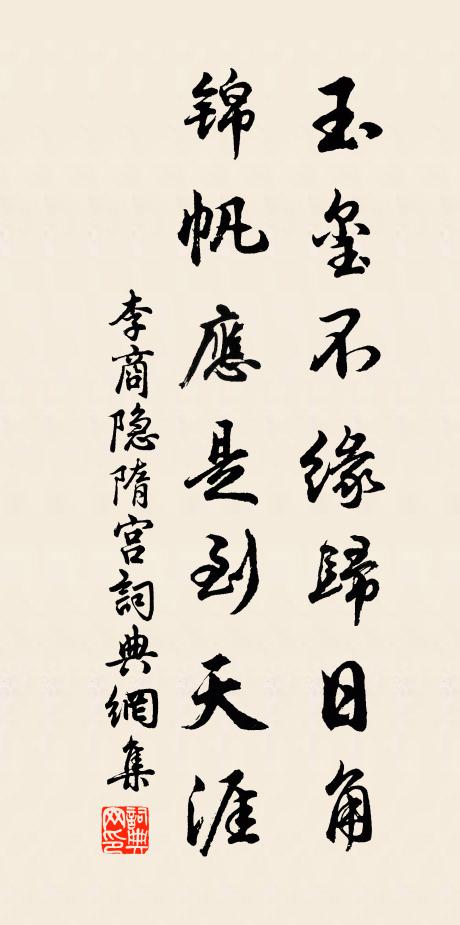 玉璽不緣歸日角
锦帆應是到天涯
李商隐隋宫詞典網集
詞典网印